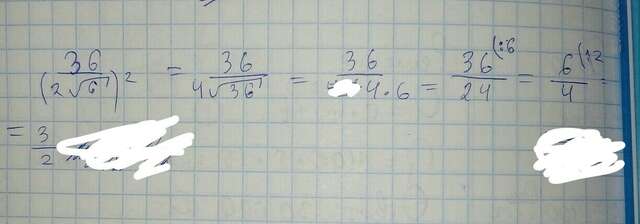 36/(2√6)² = 36/4√36 = 36/4·6 = 36(:6/24 = 6(:2/4 =
= 3/2